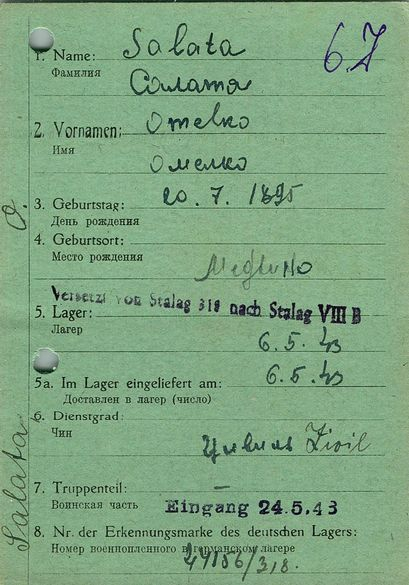 67
Salata
1. Name:
Фамилия
Салата
2. Vornamen: Omelko
Имя
Омелко
3. Geburtstag: 20. 7. 1895
День рождения
4. Geburtsort:
Место рождения
Versetzt von Stalag 318 nach Stalag VIII B
5. Lager:
Лагер
6.5.43
5a. Im Lager eingeliefert am: 6.5.43
Доставлен в лагер (число)
6. Dienstgrad:
Чин
Цивиль Zivil
7. Truppenteil: –
Воинская часть
Eingang 24.5.43
8. Nr. der Erkennungsmarke des deutschen Lagers:
Номер военнопленного в германском лагере
24156/318.
Salata O.